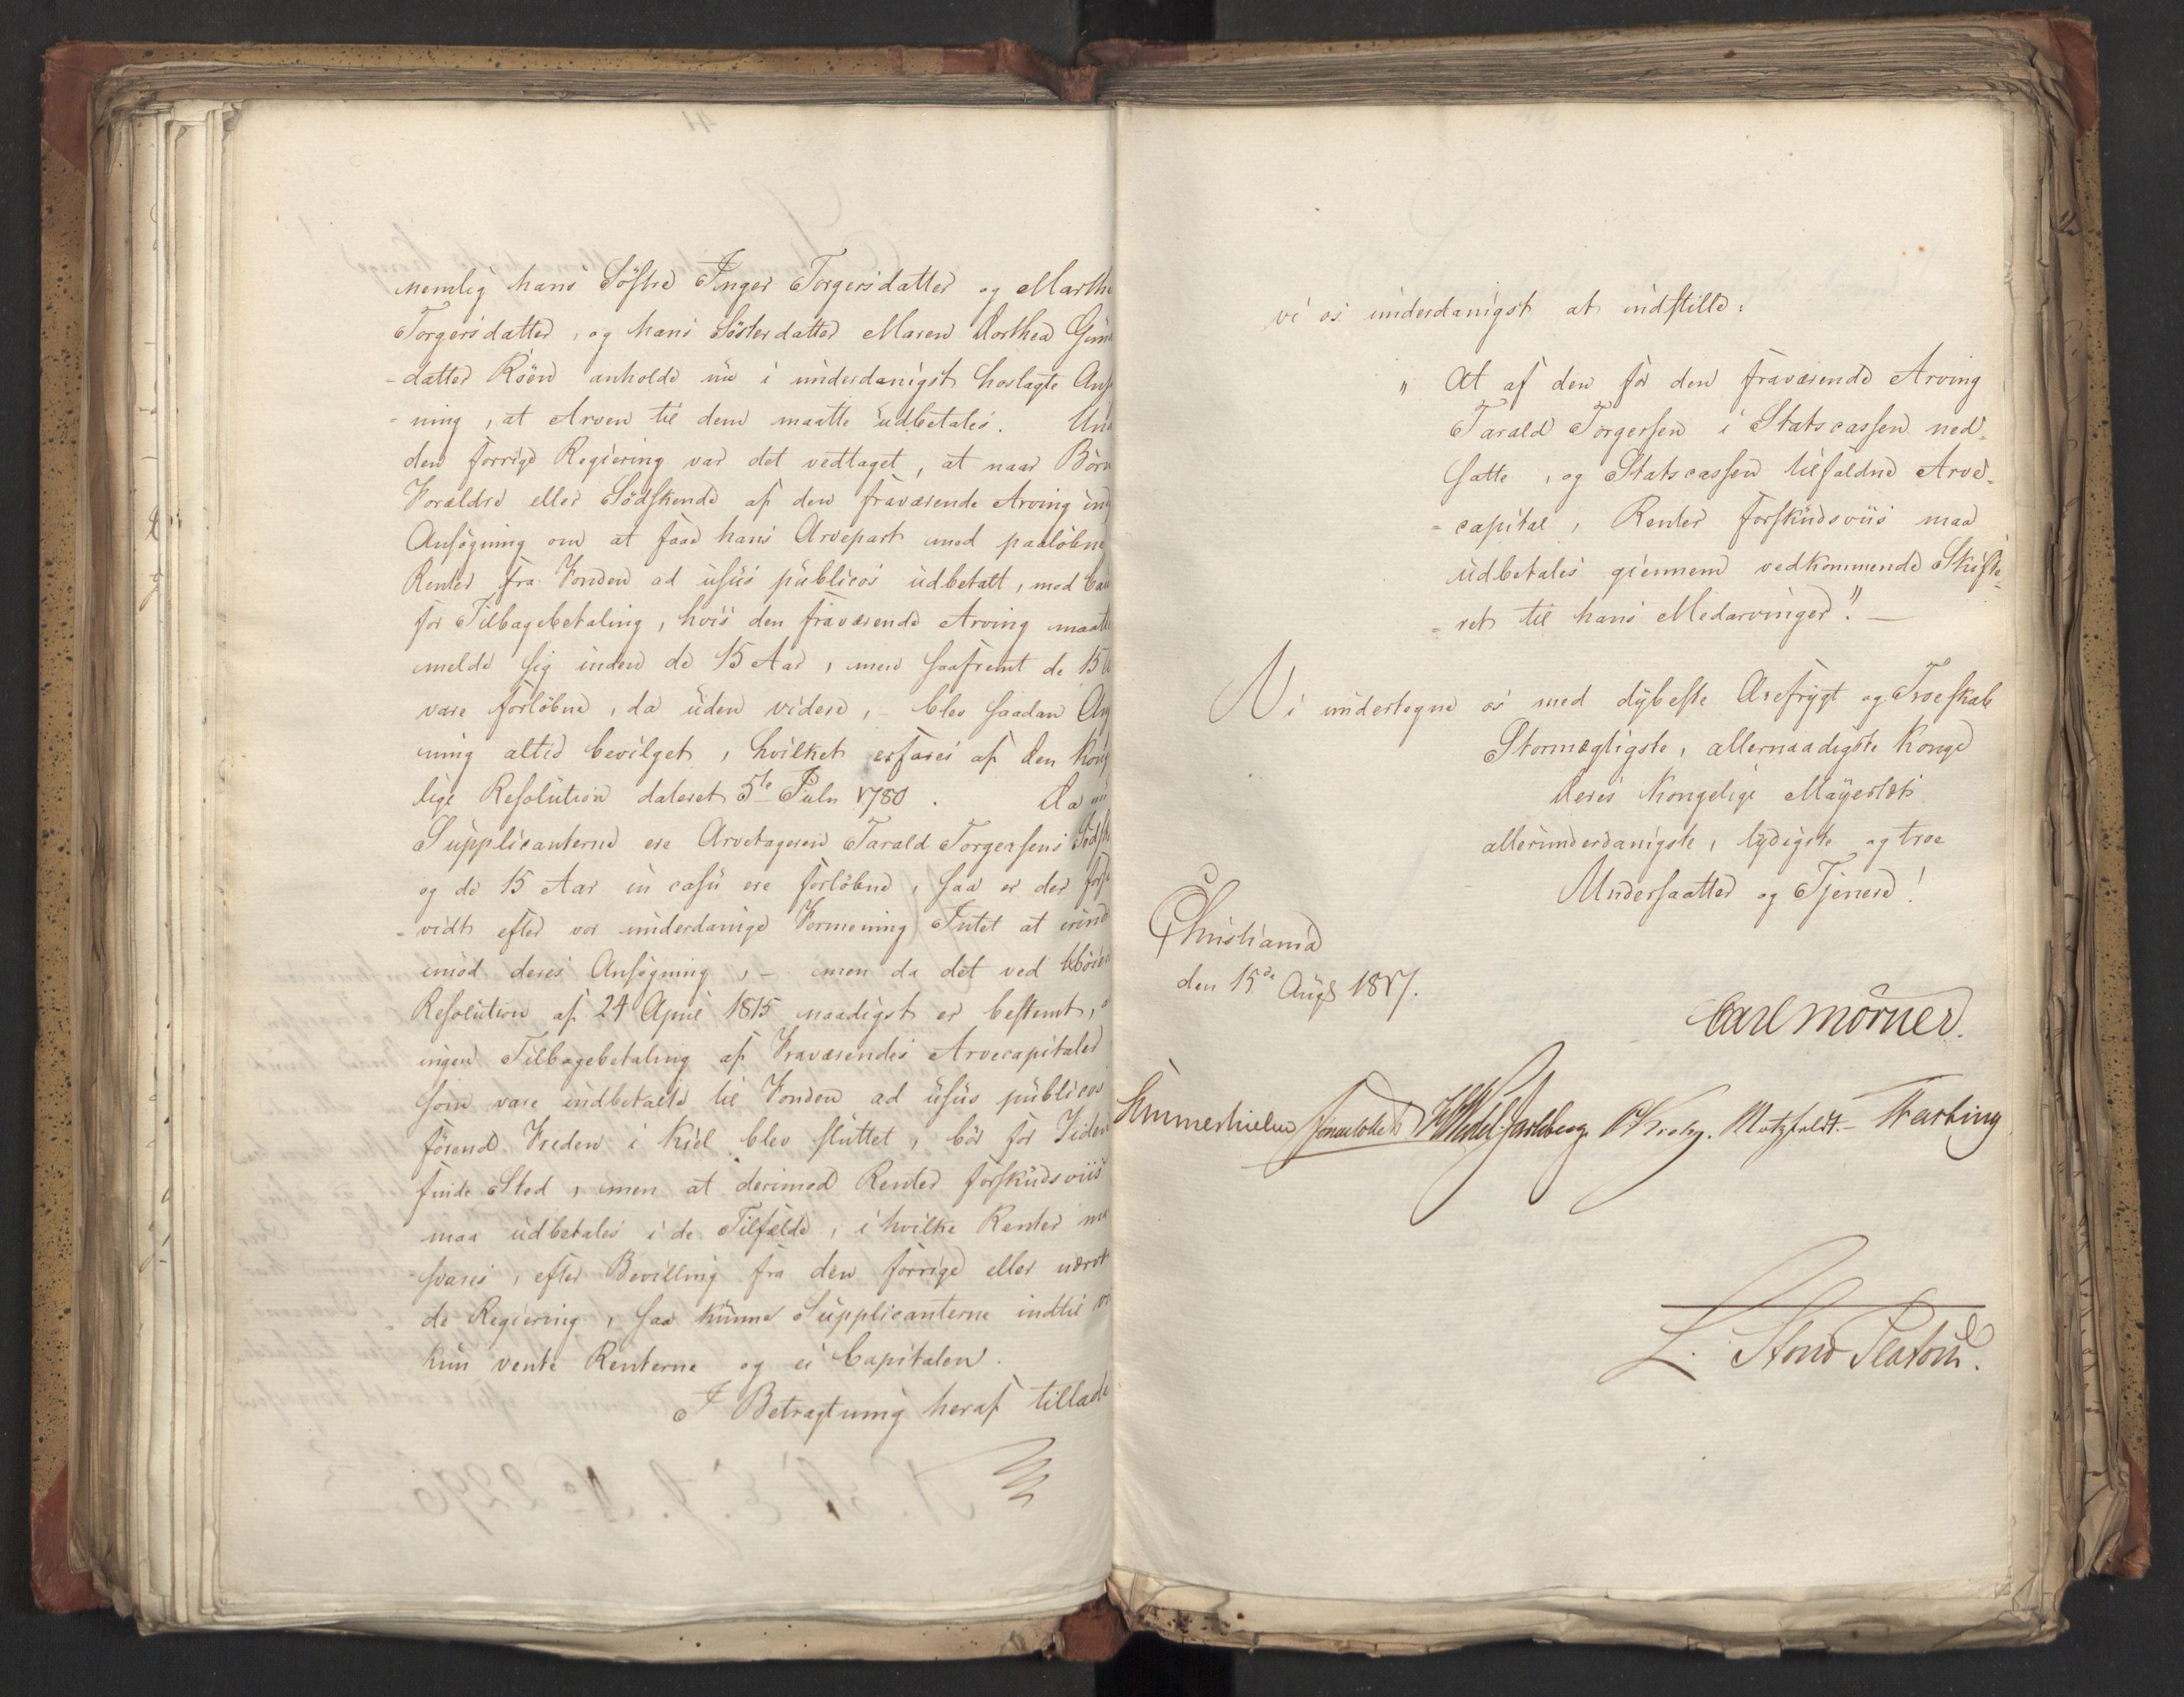 nemlig hans Søstre Inger Torgersdatter og Marthe
Torgersdatter, og hans Søsterdatter Maren Dorthea
-datter Röen anholde nu i underdanigst hoslagte Ansø
-ning, at Arven til dem maatte udbetales. Und
den forrige Regiering var det vedtaget, at naar Börn
Forældre eller Södskende af den fraværende Arving ind
Ansøgning om at faae hans Arvepart med paaløbne
Renter fra Fonden ad usus publicos udbetalt, mod Cau
for Tilbagebetaling, hvis den fraværende Arving maatte
melde sig inden de 15 Aar, men saafremt de 15
vare forløbne, da uden videre, – blev saadan Ans
ning altid bevilget, hvilket erfares af den Kong
lige Resolution dateret 5te Julii 1780. Da nu
Supplicanterne ere Arvetageren Tarald Torgersens Södsk
og de 15 Aar in casu ere forløbne, saa er der forsa
-vidt efter vor underdanige Formening Intet at erind
imod deres Ansøgning, – men da det ved
Resolution af 24 April 1815 naadigst er bestemt, a
ingen Tilbagebetaling af Fraværendes Arvecapitaler
som vare indbetalte til Fonden ad usus publicos
førend Freden i Kiel blev sluttet, bör for Tiden
finde Sted, men at derimod Renter forskudsviis
maa udbetales i de Tilfælde, i hvilke Renter
svares, efter Bevilling fra den forrige eller nærv
de Regiering, saa kunne Supplicanterne indtil
kun vente Renterne og ei Capitalen.
I Betragtning heraf tillade
vi os underdanigst at indstille:
"At af den for den fraværende Arving
Tarald Torgersen i Statscassen ned-
satte, og Statscassen tilfaldne Arve-
-capital, Renter forskudsviis maa
udbetales giennem vedkommende Skifte-
-ret til hans Medarvinger". –
Vi undertegne os med dybeste Ærefrygt og Troeskab
Stormægtigste, allernaadigste Konge
Deres Kongelige Mayestæts
allerunderdanigste, lydigste og troe
Undersaatter og Tjenere!
Christiania
den 15de Augt 1817.
Carl Mörner.
Sommerhielm Jonas Collett HWedel Jarlsberg CKrohg. Motzfeldt. – Fasting
L. Stoud Platou.